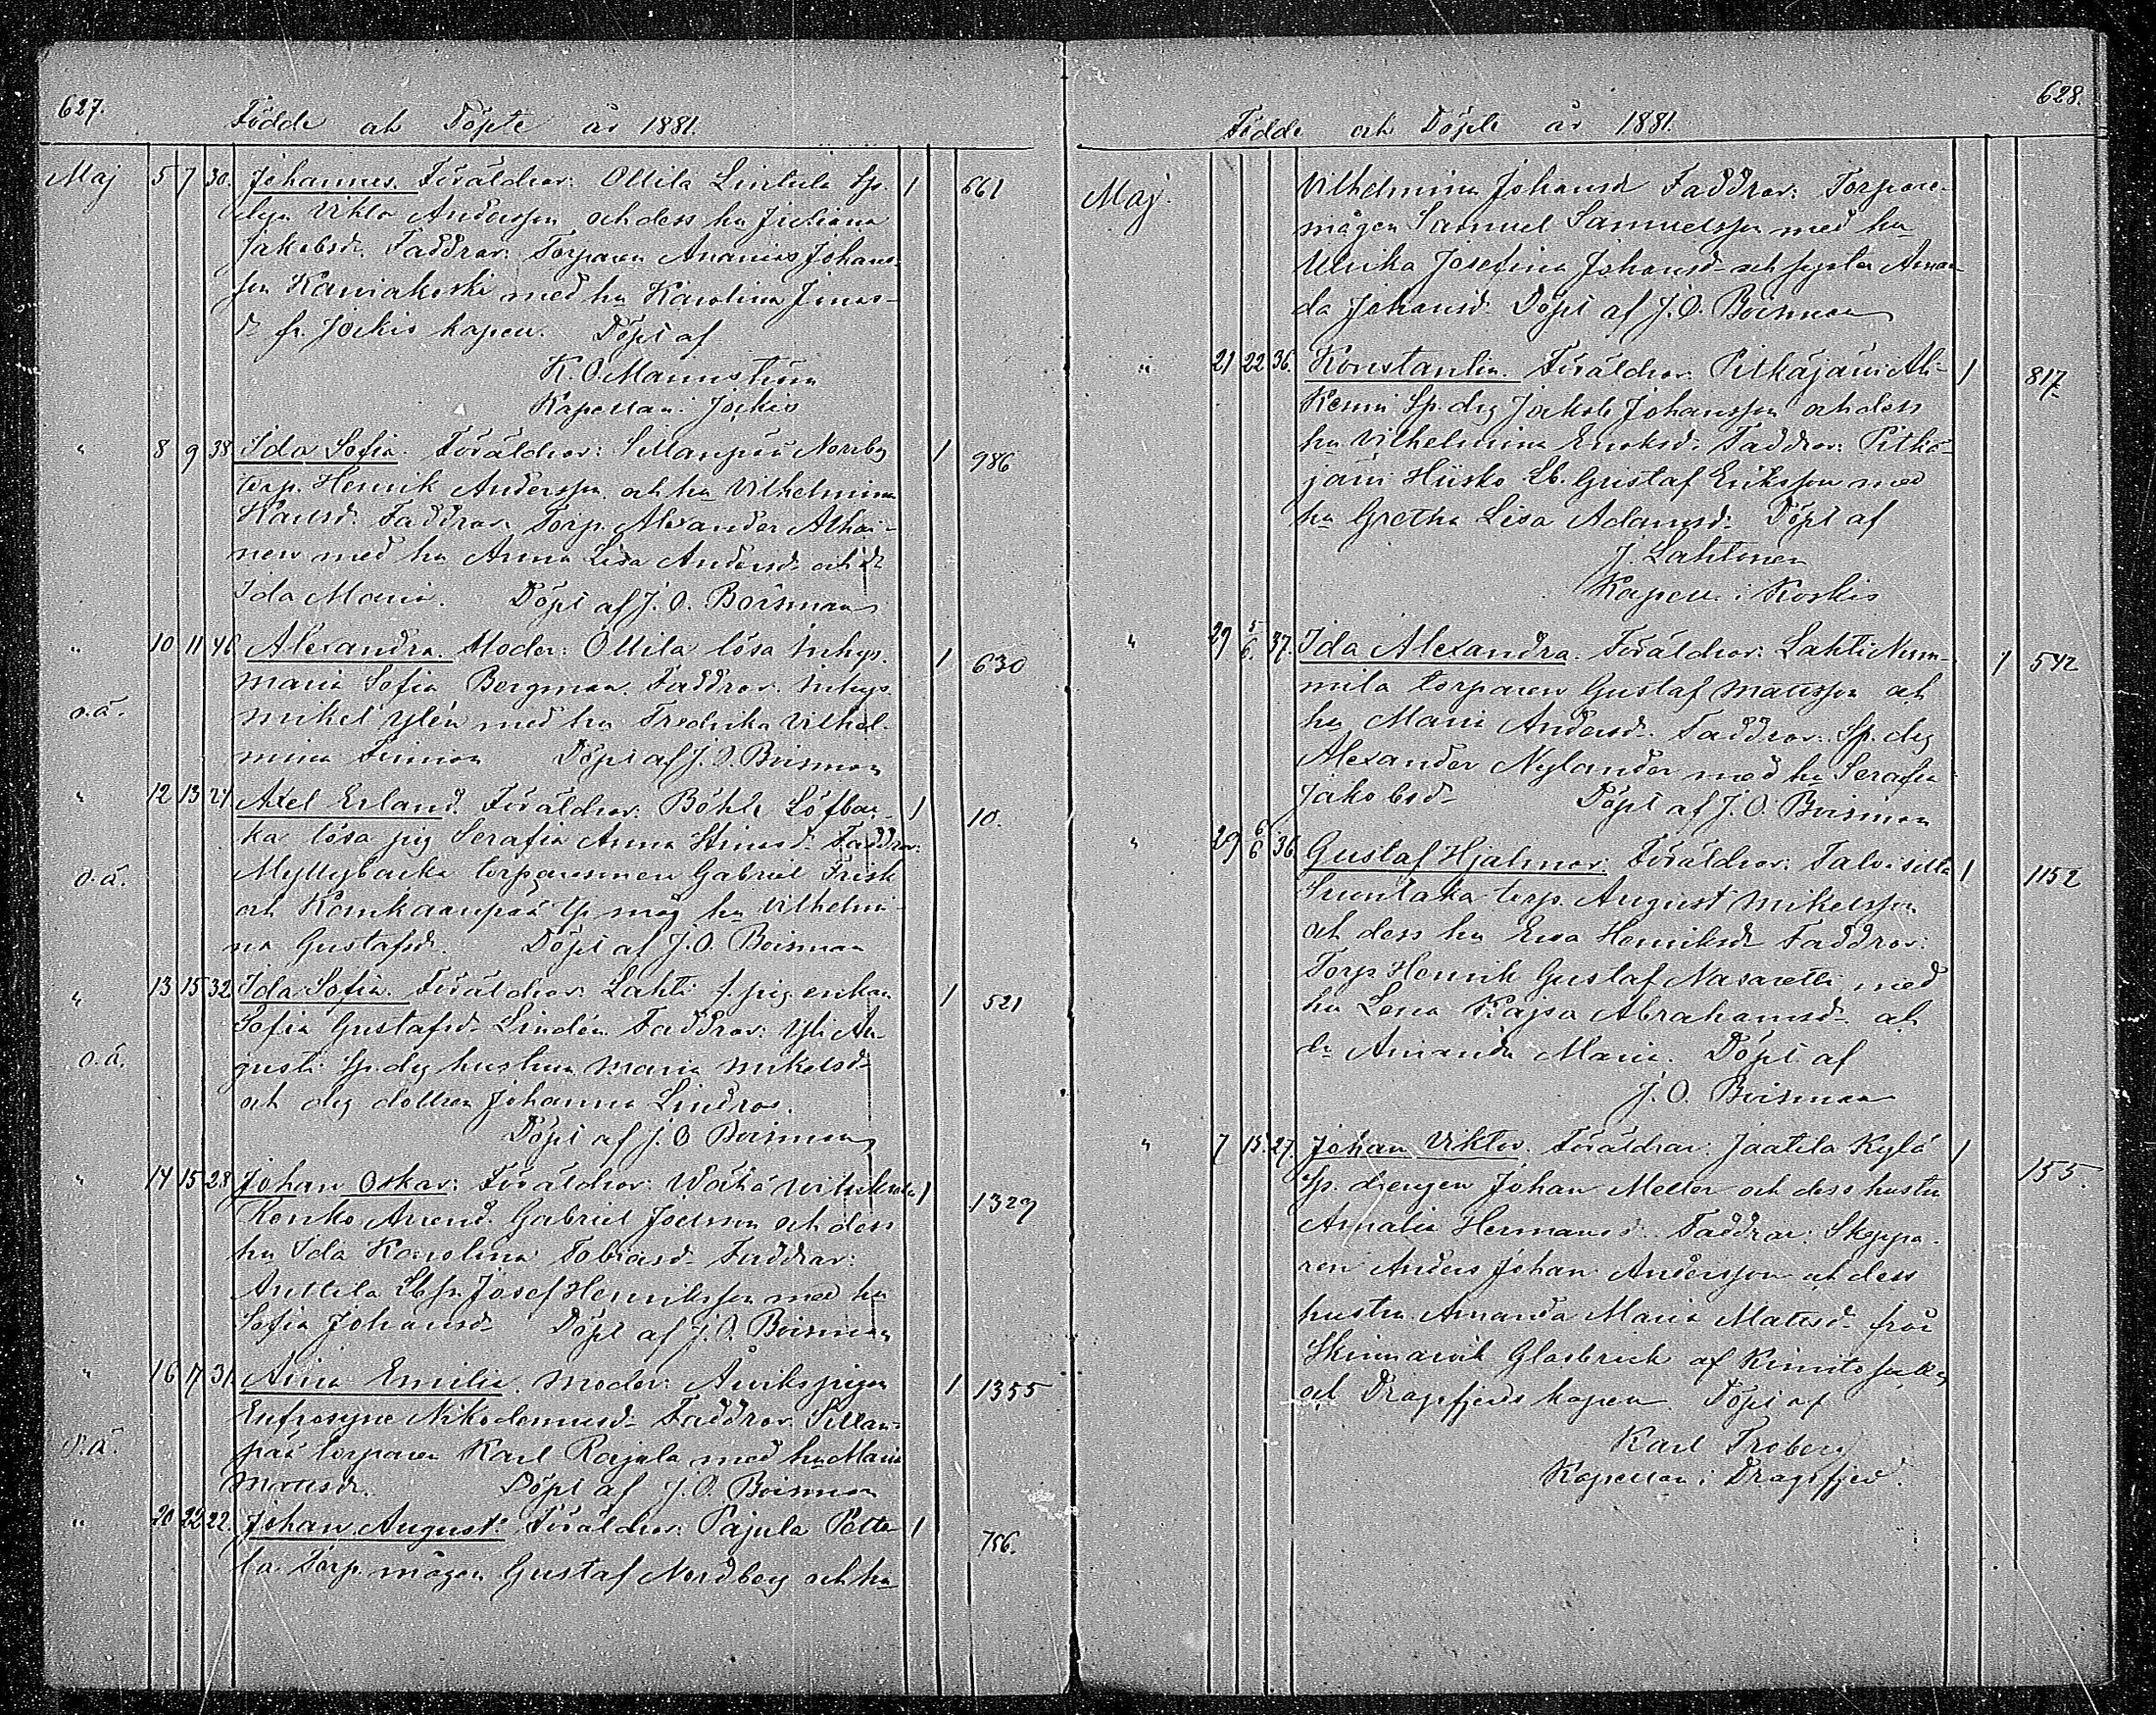 627.
Födde och Döpte år 1881.
Maj 5 7 30. Johannes. Föräldrar: Ollila Lintula Sp. 1 661
Viktor Andersson och dess hu Juliana
Jakobsd. Faddrar: Torparen Ananias Johans-
son med hu Karolina Jonas-
d. fr. Jockis kapell. Döpt af
K. O. Mannström
Kapellan i Jockis
" 8 9 38. Ida Sofia. Föräldrar: Sillanpää Norrby 1 986
torp. Henrik Andersson och hu Vilhelmina
Faddrar Torp. Alexander Alhai-
nen med hu Anna Lisa Andersd. och dr
Ida Maria. Döpt af J. O. Boisman
" 10 11 46 Alexandra. Moder: Ollila lösa Inhys. 1 630
Maria Sofia Bergman. Faddrar. Inhys.
o.ä. Mikel Ylén med hu Fredrika Vilhel-
mina Döpt af J. O. Boisman
" 12 13 21. Axel Erland. Föräldrar: Böhle Löfbac- 1 10.
ka lösa pig Serafia Anna Faddrar:
o.ä. Myllybacka Gabriel Frisk
och måg hu Vilhelmi-
na Gustafsd. Döpt af J. O. Boisman
" 13 15 32 Ida Sofia. Föräldrar: Lahti f. pig. enkan 1 521
Sofia Gustafsd. Lindén Faddrar: Yli An-
o.ä. gusti Sp. drg hustrun Maria Mikelsd.
och drg dottren Johanna Lindros.
Döpt af J. O Boisman
" 14 15 28. Johan Oskar: Föräldrar: Wähä 1 1329
Konko Arrend. Gabriel Joelsson och dess
hu Ida Karolina Tobiasd. Faddrar:
Anttila Josef Henriksson med hu
Sofia Johansd. Döpt af J. O. Boisman
" 16 17 31. Aina Emilia. Moder: Åvikspigan 1 1355
Eufrosyne Nikodemusd. Faddrar Sillan-
o.ä. pää torparen Karl Rajala med hu Maria
Mattsd. Döpt af J. O. Boisman
" 20 22 22. Johan August. Föräldrar: Pajula Potti- 1 756.
la Torp. mågen Gustaf Nordberg och hu
628.
Födde och Döpte år 1881.
Maj. Vilhelmina Johansd Faddrar: Torpare-
mågen Samuel Samuelsson med hu
Ulrika Josefina Johansd och Aman-
da Johansd. Döpt af J. O. Boisman
" 21 22 36. Konstantin. Föräldrar: Pitkäjärvi Ali- 1 817.
Kenni Sp. drg Jakob Johansson och dess
hu Vilhelmina Enoksd. Faddrar: Pitkä-
järvi Hiisko Lb. Gustaf Eriksson med
hu Gretha Lisa Adamsd. Döpt af
J. Lahtonen
Kapell. i Koskis
" 29 5/6. 37. Ida Alexandra. Föräldrar: Lahti Num- 1 542
mila torparen Gustaf Mattsson och
hu Maria Andersd. Faddrar: Sp. drg
Alexander Nylander med hu Serafia
Jakobsd. Döpt af J. O. Boisman
" 29 6/6 36. Gustaf Hjalmar: Föräldrar: Talvisilta 1 1152
Suontaka torp. August Mikelsson
och dess hu Ewa Henriksd Faddrar:
Torp Henrik Gustaf Nasaretti med
hu Lena Kajsa Abrahamsd. och
dr Amanda Maria. Döpt af
J. O. Boisman
" 7 15. 27. Johan Viktor. Föräldrar: Jaatila Kylä 1 155.
Sp. drengen Johan Meller och dess hustru
Amalia Hermansd. Faddrar: Skeppa-
ren Anders Johan Andersson och dess
hustru Amanda Maria Mattsd. från
Skinnarvik Glasbruk af Kimito
och Dragsfjerds kapell. Döpt af
Karl Troberg
Kapellan i Dragsfjerd.